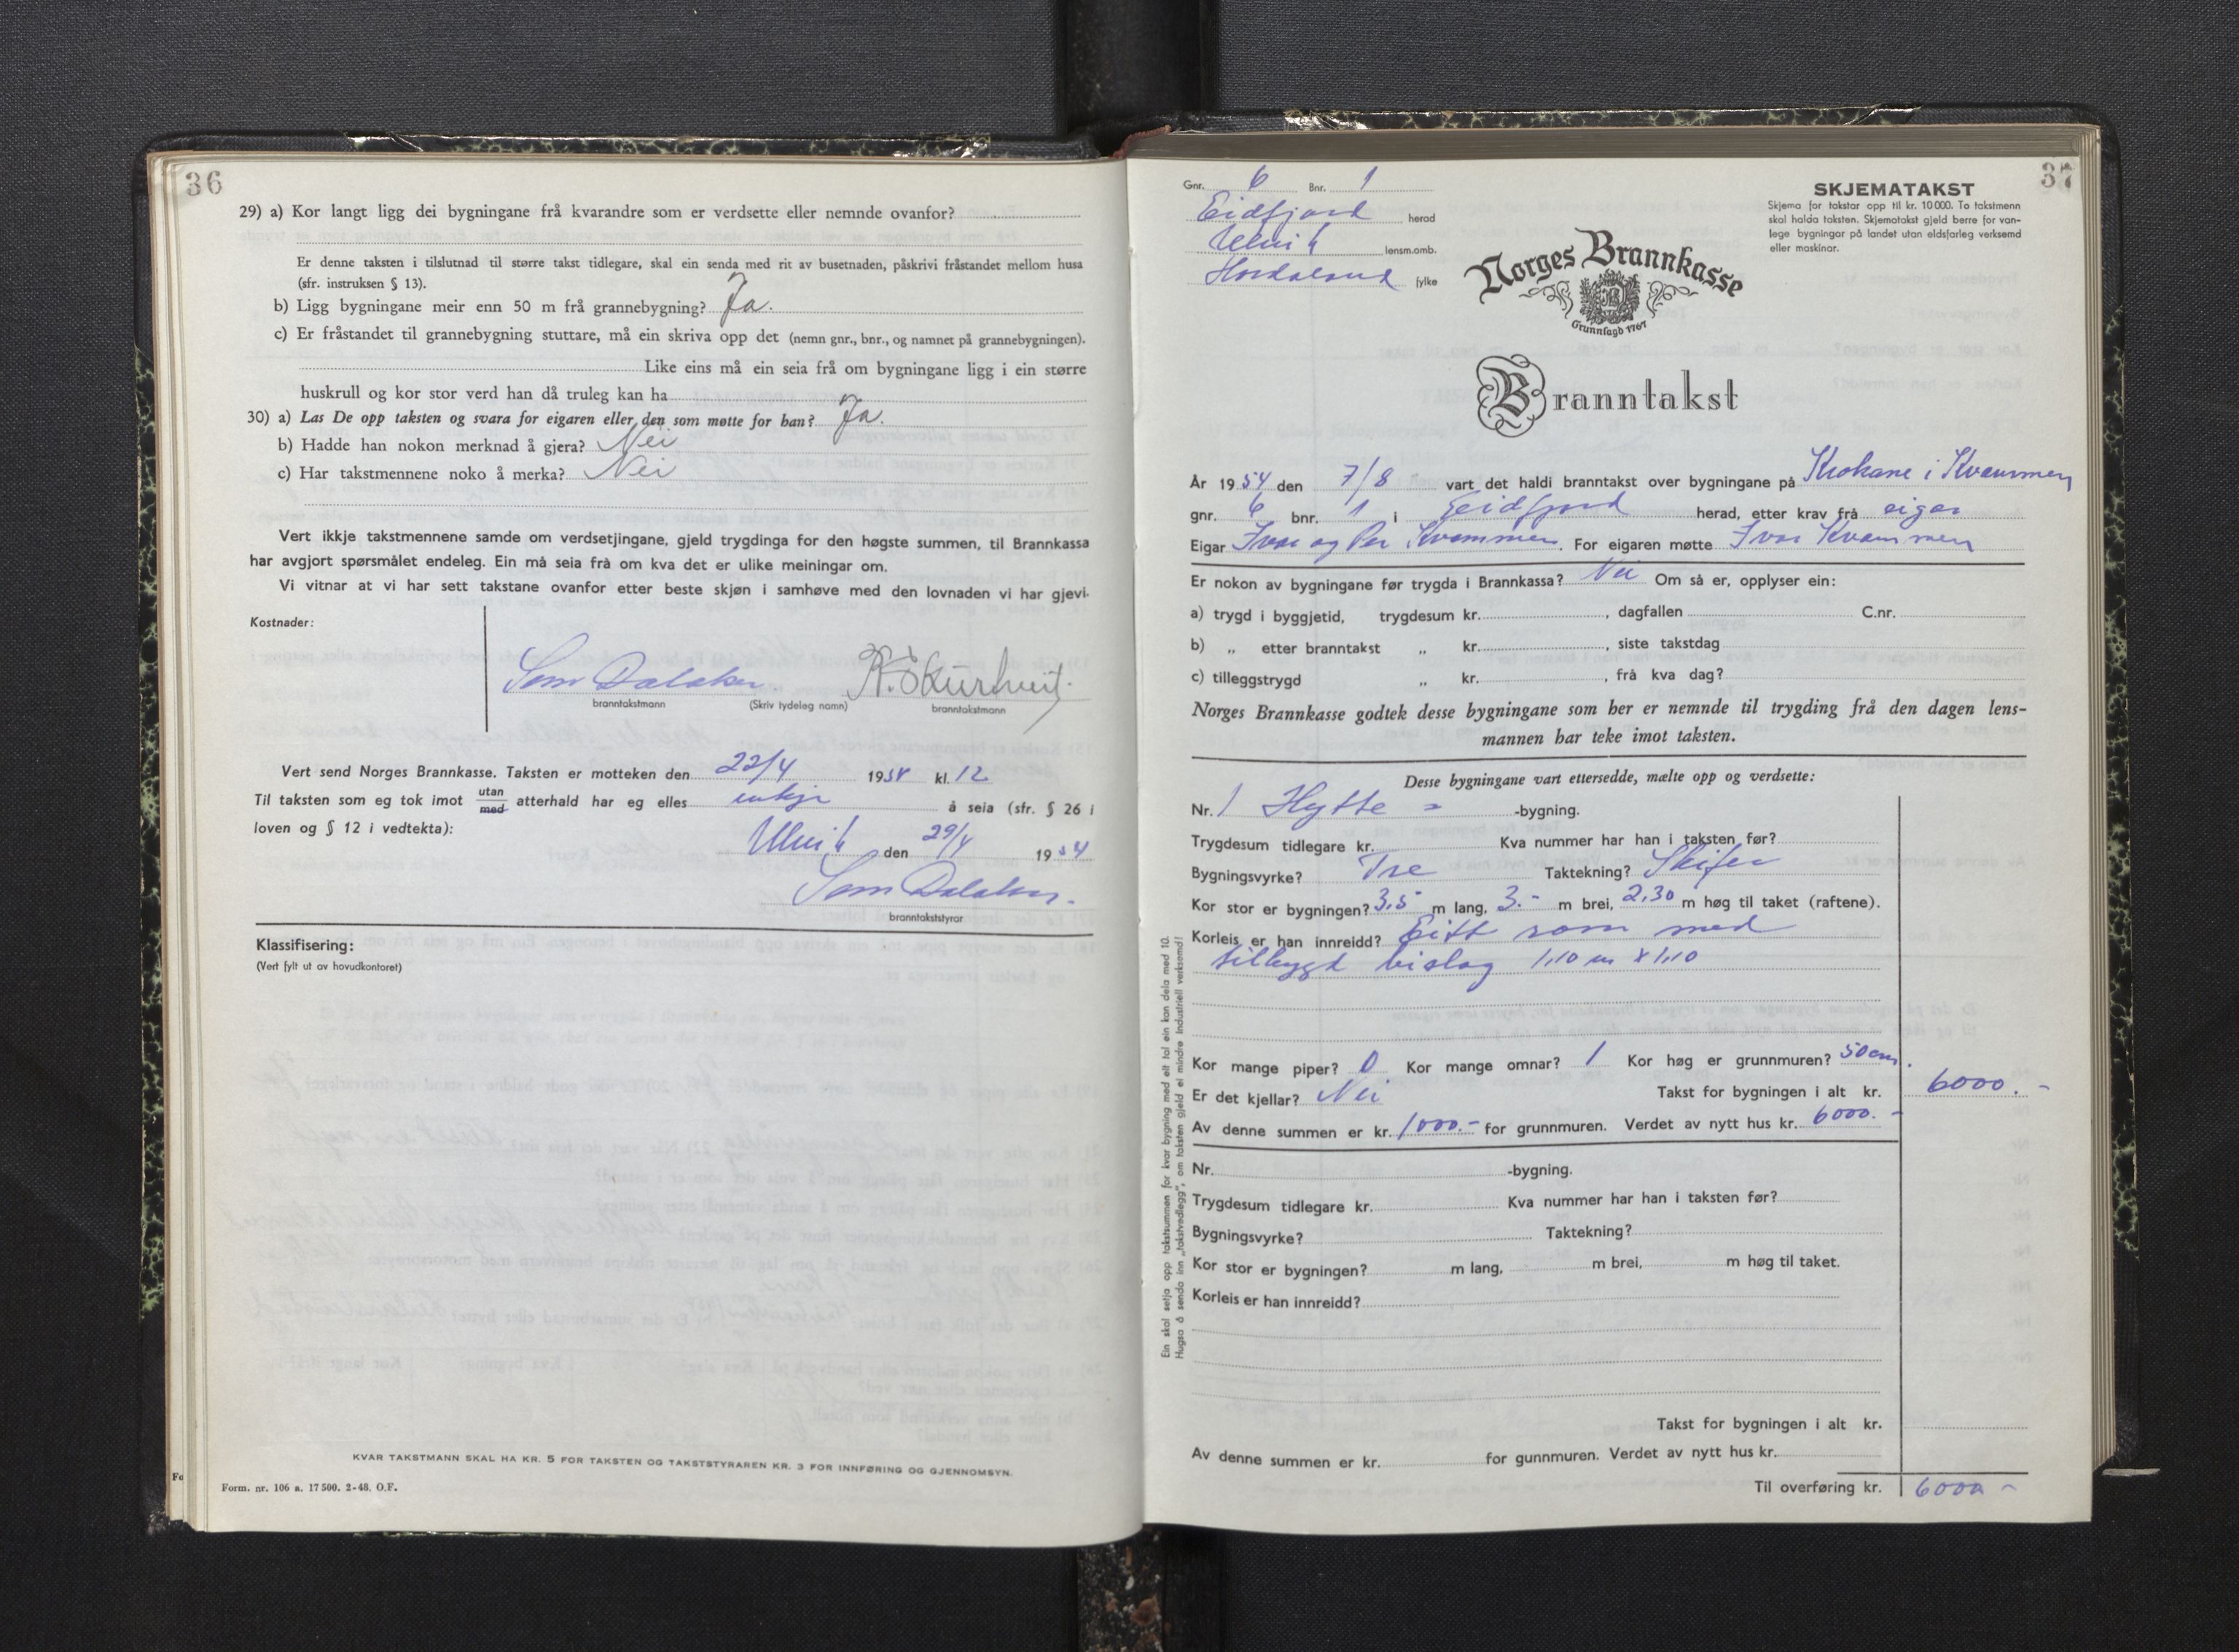 36
29) a) Kor langt ligg dei bygningane frå kvarandre som er verdsette eller nemnde ovanfor?
Er denne taksten i tilslutnad til større takst tidlegare, skal ein senda med rit av busetnaden, påskrivi fråstandet mellom husa
(sfr. instruksen § 13).
b) Ligg bygningane meir enn 50 m frå grannebygning? Ja.
c) Er fråstandet til grannebygning stuttare, må ein skriva opp det (nemn gnr., bnr., og namnet på grannebygningen).
Like eins må ein seia frå om bygningane ligg i ein større
huskrull og kor stor verd han då truleg kan ha
30) a) Las De opp taksten og svara for eigaren eller den som møtte for han? Ja.
b) Hadde han nokon merknad å gjera? Nei
c) Har takstmennene noko å merka? Nei
Vert ikkje takstmennene samde om verdsetjingane, gjeld trygdinga for den høgste summen, til Brannkassa
har avgjort spørsmålet endeleg. Ein må seia frå om kva det er ulike meiningar om.
Vi vitnar at vi har sett takstane ovanfor etter beste skjøn i samhøve med den lovnaden vi har gjevi.
Kostnader:
Sam Dalaker K. Skurtveit.
branntakstmann (Skriv tydeleg namn) branntakstmann
Vert send Norges Brannkasse. Taksten er motteken den 22/4 1954 kl. 12
Til taksten som eg tok imot utan/med atterhald har eg elles inkje å seia (sfr. § 26 i
loven og § 12 i vedtekta):
Ulvik den 29/4 1954
Sam Dalaker.
branntakststyrar
Klassifisering:
(Vert fylt ut av hovudkontoret)
KVAR TAKSTMANN SKAL HA KR. 5 FOR TAKSTEN OG TAKSTSTYRAREN KR. 3 FOR INNFØRING OG GJENNOMSYN.
Form. nr. 106 a. 17 500. 2-48. O.F.
Fo
37
Gnr. 6 Bnr. 1
Eidfjord herad
Ulvik lensm.omb.
Hordaland fylke
SKJEMATAKST
Skjema for takstar opp til kr. 10 000. To takstmenn
skal halda taksten. Skjematakst gjeld berre for van-
lege bygningar på landet utan eldsfarleg verksemd
eller maskinar.
Norges Brannkasse
Grunnlagd 1767
Branntakst
År 1954 den 7/8 vart det haldi branntakst over bygningane på Krokane i Kvammen
gnr. 6 bnr. 1 i Eidfjord herad, etter krav frå eigar
Eigar Ivar og Per Kvammen. For eigaren møtte Ivar Kvammen
Er nokon av bygningane før trygda i Brannkassa? Nei Om så er, opplyser ein:
a) trygd i byggjetid, trygdesum kr. , dagfallen C.nr.
b) „ etter branntakst „ kr. , siste takstdag
c) tilleggstrygd „ kr. , frå kva dag?
Norges Brannkasse godtek desse bygningane som her er nemnde til trygding frå den dagen lens-
mannen har teke imot taksten.
Desse bygningane vart ettersedde, mælte opp og verdsette:
Nr. 1 Hytte = -bygning.
Trygdesum tidlegare kr. Kva nummer har han i taksten før?
Bygningsvyrke? Tre Taktekning? Skifer
Kor stor er bygningen? 3,5 m lang, 3.- m brei, 2,30 m høg til taket (raftene).
Korleis er han innreidd? Eitt rom med
tilbygd bislag 1,10 m x 1,10
Kor mange piper? 0 Kor mange omnar? 1 Kor høg er grunnmuren? 50 cm.
Er det kjellar? Nei Takst for bygningen i alt kr. 6000.-
Av denne summen er kr. 1000.- for grunnmuren. Verdet av nytt hus kr. 6000.-
Nr. -bygning.
Trygdesum tidlegare kr. Kva nummer har han i taksten før?
Bygningsvyrke? Taktekning?
Kor stor er bygningen? m lang, m brei, m høg til taket.
Korleis er han innreidd?
Takst for bygningen i alt kr.
Av denne summen er kr. for gunnmuren. Verdet av nytt hus kr.
Til overføring kr. 6000 -
Ein skal setja opp takstsummen for kvar bygning med eit tal ein kan dela med 10.
Hugsa å senda inn „takstvedlegg", om taksten gjeld ei mindre industriell verksemd!